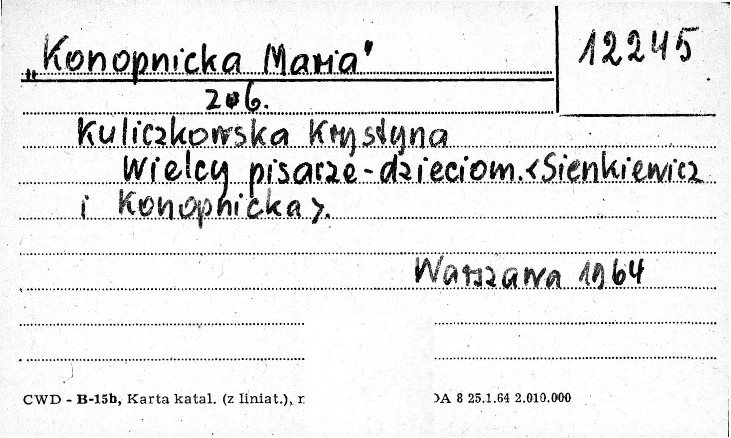 „Konopnicka Maria"
12245
zob.
Kuliczkowska Krystyna
Wielcy pisarze-dzieciom.<Sienkiewicz
i Konopnicka>.
Warszawa 1964
CWD - B-15h, Karta katal. (z liniat.), DA 8 25.1.64 2.010.000